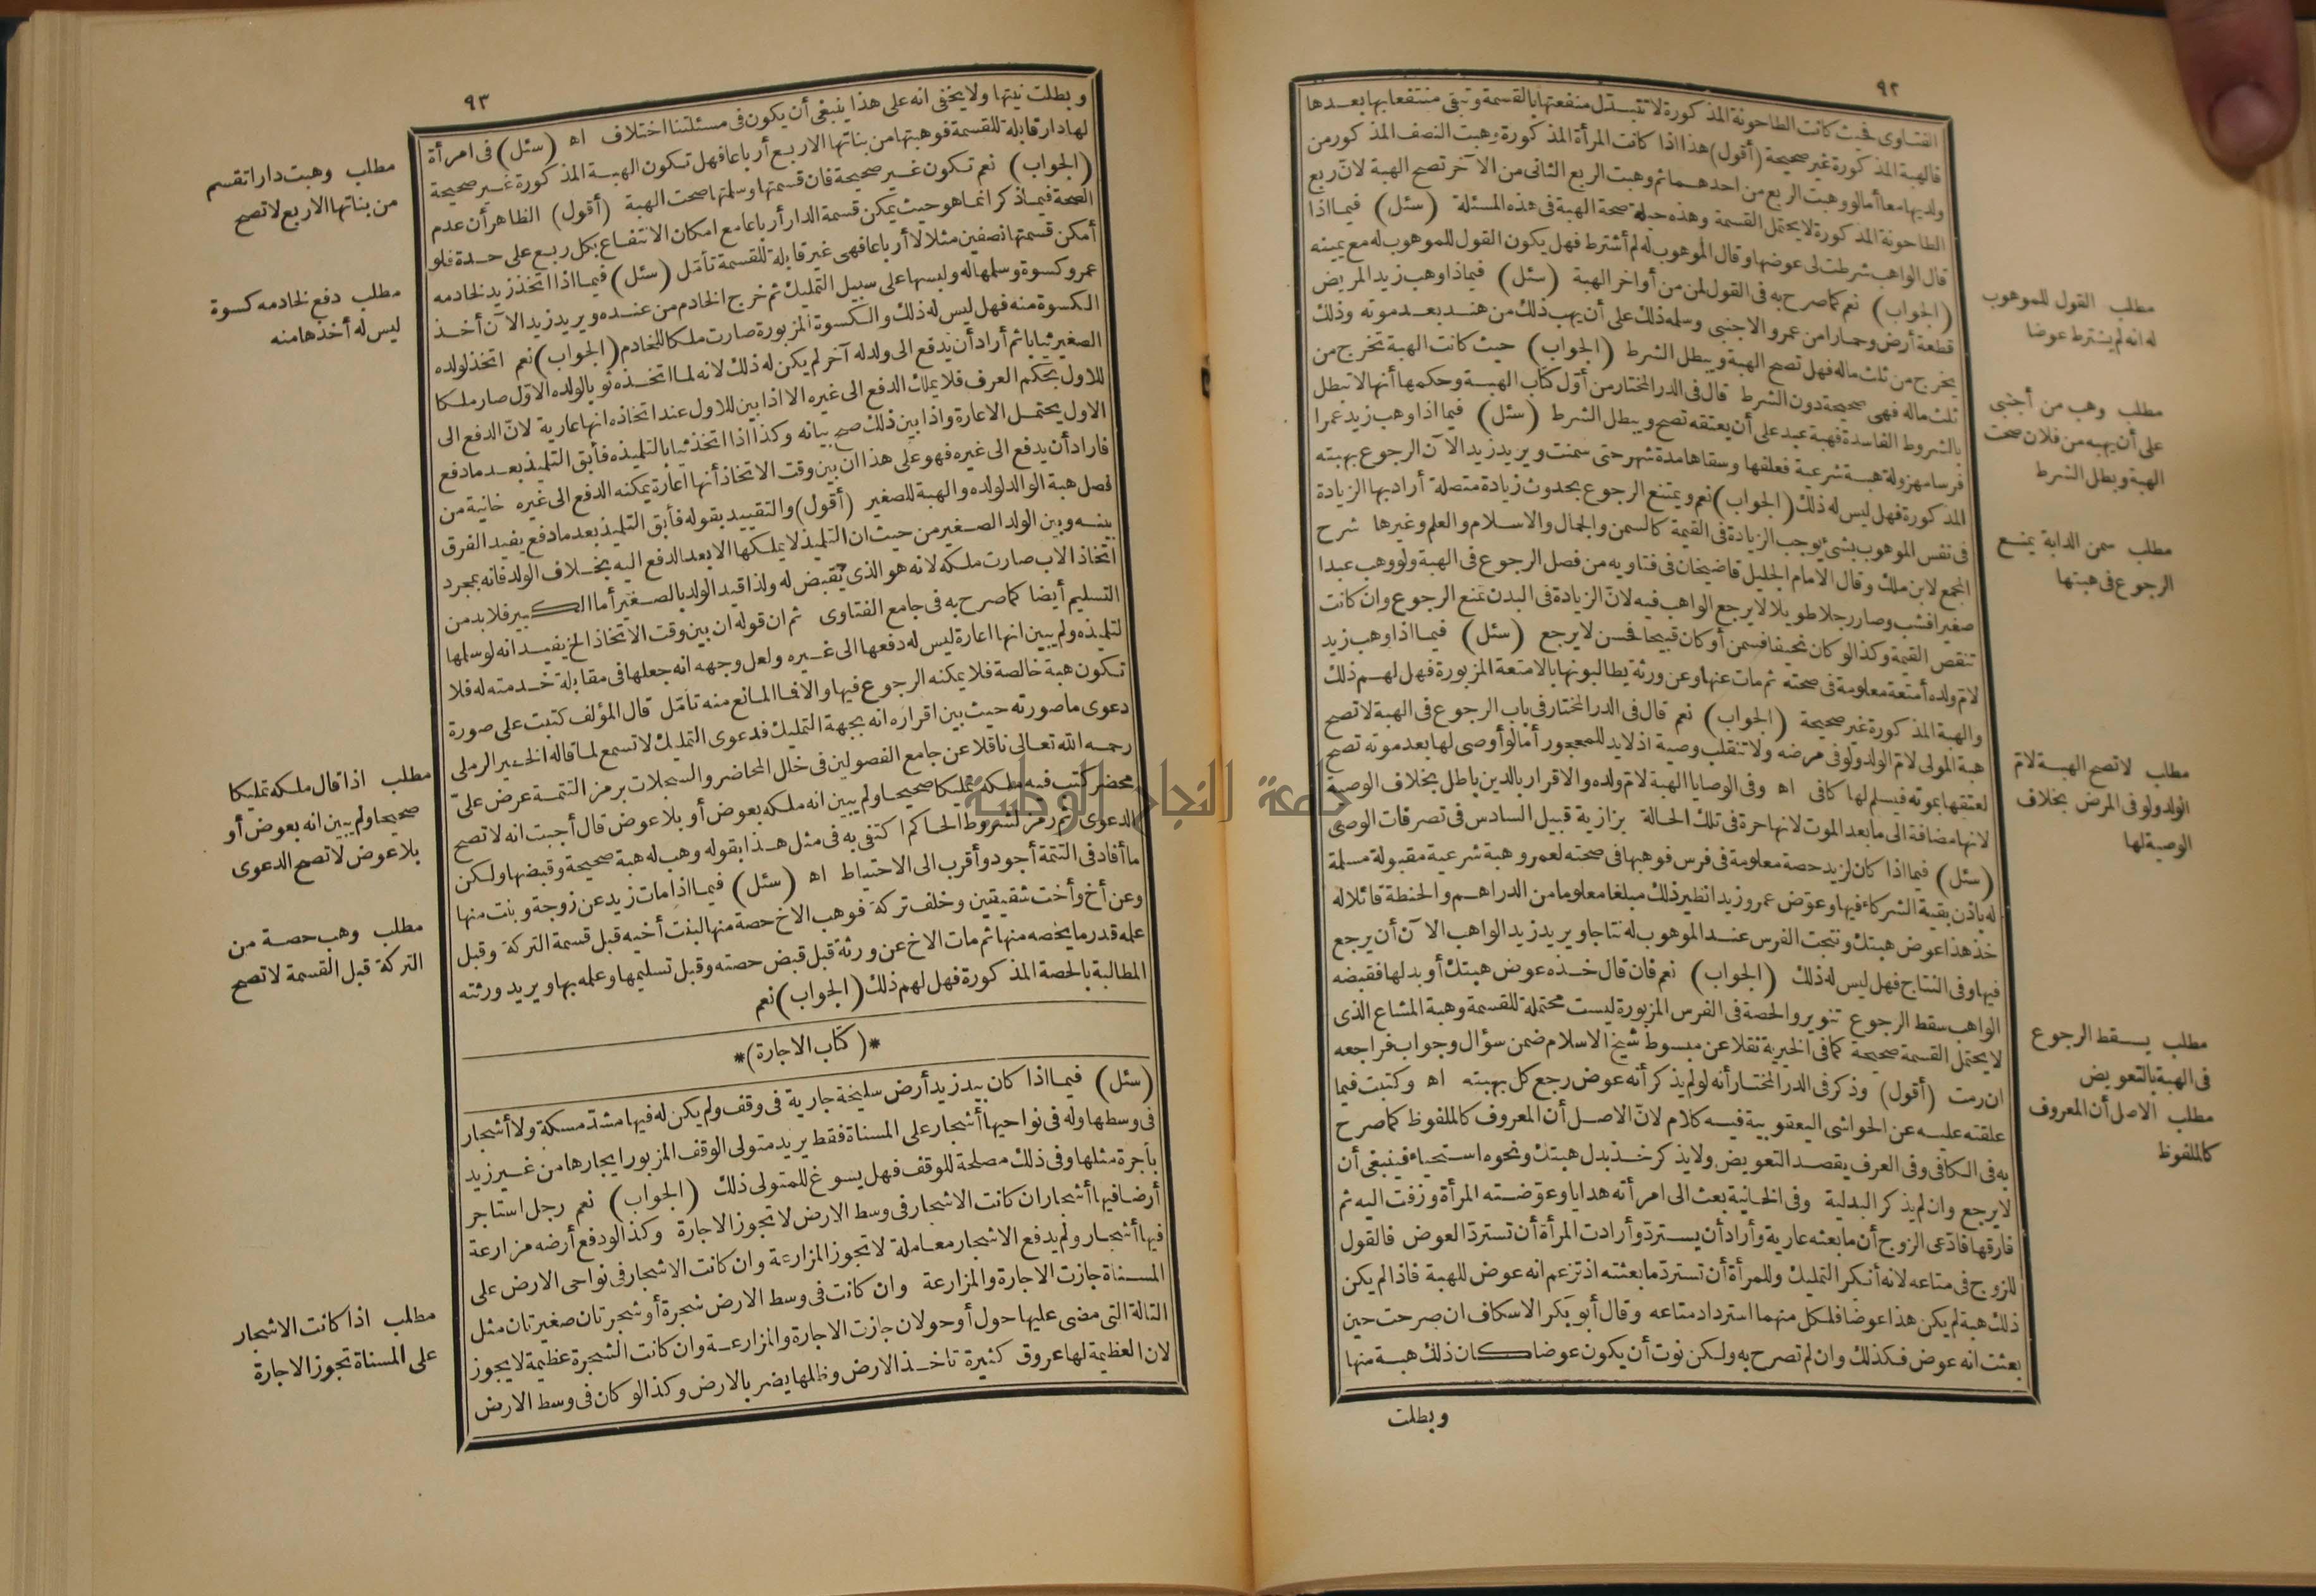 ٩٢
الفتاوى فحيث كانت الطاحونة المذكورة لا تتبدل منفعتها بالقسمة وتبقى منتفعا بها بعدها
فالهبة المذكورة غير صحيحة (أقول) هذا اذا كانت المرأة المذكورة وهبت النصف المذكور من
ولديها معا أما لو وهبت الربع من احدهما ثم وهبت الربع الثانى من الآخر تصح الهبة لان ربع
الطاحونة المذكورة لا يحتمل القسمة وهذه حيلة صحة الهبة فى هذه المسئلة (سئل) فيما اذا
قال الواهب شرطت لى عوضها وقال الموهوب له لم أشترط فهل يكون القول للموهوب له مع يمينه
(الجواب) نعم كما صرح به فى القول لمن من أواخر الهبة (سئل) فيما ذا وهب زيد المريض
قطعة أرض وحمارا من عمرو الاجنبى وسلمه ذلك على أن يهب ذلك من هند بعد موته وذلك
يخرج من ثلث ماله فهل تصح الهبة ويبطل الشرط (الجواب) حيث كانت الهبة تخرج من
ثلث ماله فهى صحيحة دون الشرط قال فى الدر المختار من أول كتاب الهبة وحكمها أنها لا تبطل
بالشروط الفاسدة فهبة عبد على أن يعتقه تصح ويبطل الشرط (سئل) فيما اذا وهب زيد عمرا
فرسا مهزولة هبة شرعية فعلفها وسقاها مدة شهر حتى سمنت ويريد زيد الآن الرجوع بهبته
المذكورة فهل ليس له ذلك (الجواب) نعم ويمتنع الرجوع بحدوث زيادة متصلة أراد بها الزيادة
فى نفس الموهوب بشئ يوجب الزيادة فى القيمة كالسمن والجمال والاسلام والعلم وغيرها شرح
المجمع لابن ملك وقال الامام الجليل قاضيخان فى فتاويه من فصل الرجوع فى الهبة ولو وهب عبدا
صغيرا فشب وصار رجلا طويلا لا يرجع الواهب فيه لان الزيادة فى البدن تمنع الرجوع وان كانت
تنقص القيمة وكذا لو كان نحيفا فسمن أو كان قبيحا فحسن لا يرجع (سئل) فيما اذا وهب زيد
لام ولده أمتعة معلومة فى صحته ثم مات عنها وعن ورثة يطالبونها بالامتعة المزبورة فهل لهم ذلك
والهبة المذكورة غير صحيحة (الجواب) نعم قال فى الدر المختار فى باب الرجوع فى الهبة لا تصح
هبة المولى لام الولد ولو فى مرضه ولا تنقلب وصية اذ لا يد للمحجور أما لو أوصى لها بعد موته تصح
لعتقها بموته فيسلم لها كافى اه وفى الوصايا الهبة لام ولده والاقرار بالدين باطل بخلاف الوصية
لانها مضافة الى ما بعد الموت لانها حرة فى تلك الحالة بزازية قبيل السادس فى تصرفات الوصى
(سئل) فيما اذا كان لزيد حصة معلومة فى فرس فوهبها فى صحته لعمرو هبة شرعية مقبولة مسلمة
له باذن بقية الشركاء فيها وعوض عمرو زيدا نظير ذلك مبلغا معلوما من الدراهم والحنطة قائلا له
خذ هذا عوض هبتك ونتجت الفرس عند الموهوب له نتاجا ويريد زيد الواهب الآن أن يرجع
فيها وفى النتاج فهل ليس له ذلك (الجواب) نعم فان قال خذه عوض هبتك أو بدلها فقبضه
الواهب سقط الرجوع تنوير والحصة فى الفرس المزبورة ليست محتملة للقسمة وهبة المشاع الذى
لا يحتمل القسمة صحيحة كما فى الخيرية نقلا عن مبسوط شيخ الاسلام ضمن سؤال وجواب فراجعه
ان رمت (أقول) وذكر فى الدر المختار أنه لو لم يذكر أنه عوض رجع كل بهبته اه وكتبت فيما
علقته عليه عن الحواشى اليعقوبية فيه كلام لان الاصل أن المعروف كالملفوظ كما صرح
به فى الكافى وفى العرف يقصد التعويض ولا يذكر خذ بدل هبتك ونحوه استحياء فينبغى أن
لا يرجع وان لم يذكر البدلية وفى الخانية بعث الى امرأته هدايا وعوضته المرأة وزفت اليه ثم
فارقها فادعى الزوج أن ما بعثه عارية وأراد أن يسترد وأرادت المرأة أن تسترد العوض فالقول
للزوج فى متاعه لانه أنكر التمليك وللمرأة أن تسترد ما بعثته اذ تزعم انه عوض للهبة فاذا لم يكن
ذلك هبة لم يكن هذا عوضا فلكل منهما استرداد متاعه وقال أبو بكر الاسكاف ان صرحت حين
بعثت انه عوض فكذلك وان لم تصرح به ولكن نوت أن يكون عوضا كان ذلك هبة منها
وبطلت
مطلب القول للموهوب
له انه لم يشترط عوضا
مطلب وهب من أجنبى
على أن يهبه من فلان صحت
الهبة وبطل الشرط
مطلب سمن الدابة يمنع
الرجوع فى هبتها
مطلب لا تصح الهبة لام
الولد ولو فى المرض بخلاف
الوصية لها
مطلب يسقط الرجوع
فى الهبة بالتعويض
مطلب الاصل أن المعروف
كالملفوظ
٩٣
وبطلت نيتها ولا يخفى انه على هذا ينبغى أن يكون فى مسئلتنا اختلاف اه (سئل) فى امرأة
لها دار قابلة للقسمة فوهبتها من بناتها الاربع أرباعا فهل تكون الهبة المذكورة غير صحيحة
(الجواب) نعم تكون غير صحيحة فان قسمتها وسلمتها صحت الهبة (أقول) الظاهر أن عدم
الصحة فيما ذكر انما هو حيث يمكن قسمة الدار أرباعا مع امكان الانتفاع بكل ربع على حدة فلو
أمكن قسمتها نصفين مثلا لا أرباعا فهى غير قابلة للقسمة تأمل (سئل) فيما اذا اتخذ زيد لخادمه
عمرو كسوة وسلمها له ولبسها على سبيل التمليك ثم خرج الخادم من عنده ويريد زيد الآن أخذ
الكسوة منه فهل ليس له ذلك والكسوة المزبورة صارت ملكا للخادم (الجواب) نعم اتخذ لولده
الصغير ثيابا ثم أراد أن يدفع الى ولد له آخر لم يكن له ذلك لانه لما اتخذه ثوبا لولده الاول صار ملكا
للاول بحكم العرف فلا يملك الدفع الى غيره الا اذا بين للاول عند اتخاذه انها عارية لان الدفع الى
الاول يحتمل الاعارة واذا بين ذلك صح بيانه وكذا اذا اتخذ ثيابا لتلميذه فأبق التلميذ بعد ما دفع
فاراد أن يدفع الى غيره فهو على هذا ان بين وقت الاتخاذ أنها اعارة يمكنه الدفع الى غيره خانية من
فصل هبة الوالد لولده والهبة للصغير (أقول) والتقييد بقوله فأبق التلميذ بعد ما دفع يفيد الفرق
بينه وبين الولد الصغير من حيث ان التلميذ لا يملكها الا بعد الدفع اليه بخلاف الولد فانه بمجرد
اتخاذ الاب صارت ملكه لانه هو الذى يقبض له ولذا قيد الولد بالصغير أما الكبير فلا بد من
التسليم أيضا كما صرح به فى جامع الفتاوى ثم ان قوله ان بين وقت الاتخاذ الخ يفيد انه لو سلمها
لتلميذه ولم يبين انها اعارة ليس له دفعها الى غيره ولعل وجهه انه جعلها فى مقابلة خدمته له فلا
تكون هبة خالصة فلا يمكنه الرجوع فيها والا فما المانع منه تأمل قال المؤلف كتبت على صورة
دعوى ما صورته حيث بين اقراره انه بجهة التمليك فدعوى التمليك لا تسمع لما قاله الخير الرملى
رحمه الله تعالى ناقلا عن جامع الفصولين فى خلل المحاضر والسجلات برمز التتمة عرض على
محضر كتب فيه ملكه تمليكا صحيحا ولم يبين انه ملكه بعوض أو بلا عوض قال أجبت انه لا تصح
الدعوى ثم رمز لشروط الحاكم اكتفى به فى مثل هذا بقوله وهب له هبة صحيحة وقبضها ولكن
ما أفاد فى التتمة أجود وأقرب الى الاحتياط اه (سئل) فيما اذا مات زيد عن زوجة وبنت منها
وعن أخ وأخت شقيقتين وخلف تركة فوهب الاخ حصة منها لبنت أخيه قبل قسمة التركة وقبل
علمه قدر ما يخصه منها ثم مات الاخ عن ورثة قبل قبض حصته وقبل تسليمها وعلمه بها ويريد ورثته
المطالبة بالحصة المذكورة فهل لهم ذلك (الجواب) نعم
*(كتاب الاجارة)*
(سئل) فيما اذا كان بيد زيد أرض سليخة جارية فى وقف ولم يكن له فيها مشد مسكة ولا أشجار
فى وسطها وله فى نواحيها أشجار على المسناة فقط يريد متولى الوقف المزبور ايجارها من غير زيد
بأجرة مثلها وفى ذلك مصلحة للوقف فهل يسوغ للمتولى ذلك (الجواب) نعم رجل استاجر
أرضا فيها أشجار ان كانت الاشجار فى وسط الارض لا تجوز الاجارة وكذا لو دفع أرضه مزارعة
فيها أشجار ولم يدفع الاشجار معاملة لا تجوز المزارعة وان كانت الاشجار فى نواحى الارض على
المسناة جازت الاجارة والمزارعة وان كانت فى وسط الارض شجرة أو شجرتان صغيرتان مثل
التالة التى مضى عليها حول أو حولان جازت الاجارة والمزارعة وان كانت الشجرة عظيمة لا يجوز
لان العظيمة لها عروق كثيرة تاخذ الارض وظلها يضر بالارض وكذا لو كان فى وسط الارض
مطلب وهبت دارا تقسم
من بناتها الاربع لا تصح
مطلب دفع لخادمه كسوة
ليس له أخذها منه
مطلب اذا قال ملكه تمليكا
صحيحا ولم يبين انه بعوض أو
بلا عوض لا تصح الدعوى
مطلب وهب حصة من
التركة قبل القسمة لا تصح
مطلب اذا كانت الاشجار
على المسناة تجوز الاجارة
جامعة النجاح الوطنية